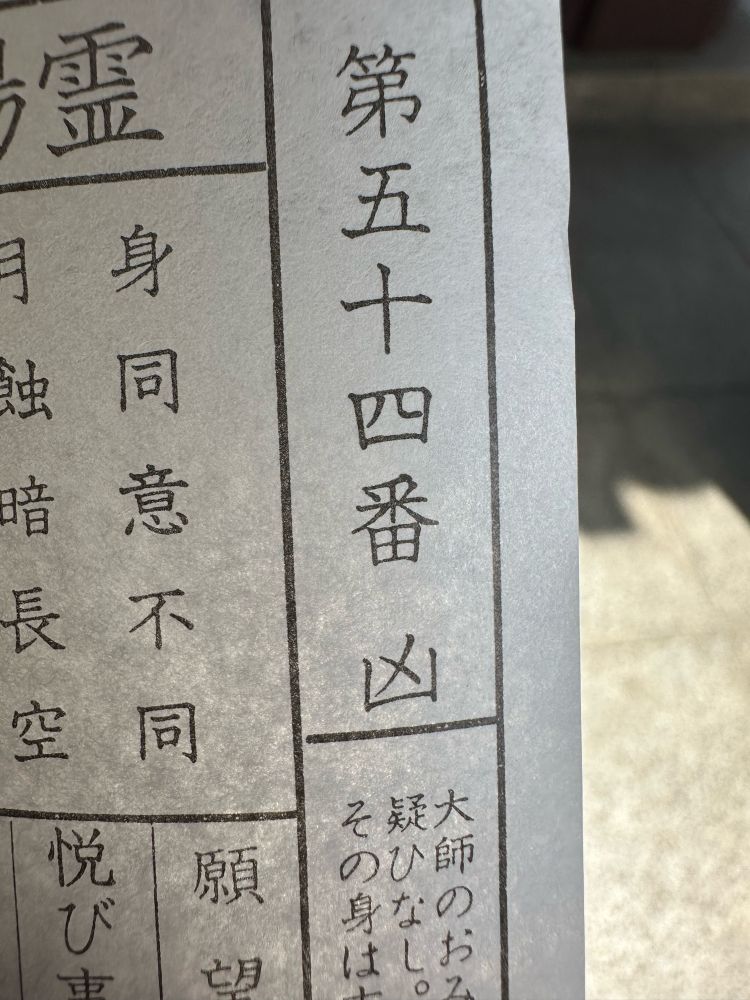 第五十四番 凶
大師のおみ
疑ひなし。
その身は
霊
身同意不同
月蝕暗長空
願望
悦び事